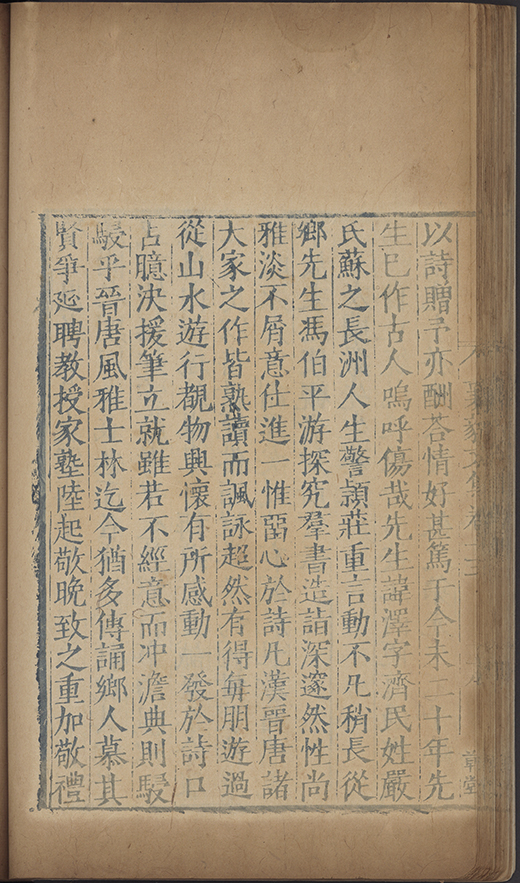 以詩贈予亦酬荅情好甚篤于今未二十年先
生巳作古人嗚呼傷哉先生諱澤字濟民姓嚴
氏蘇之長洲人生警頴莊重言動不凡稍長從
鄉先生馮伯平游探究羣書造詣深邃然性尚
雅淡不屑意仕進一惟留心於詩凡漢晉唐諸
大家之作皆熟讀而諷詠超然有得每朋游過
從山水遊行覩物興懷有所感動一發於詩口
占臆決援筆立就雖若不經意而冲澹典則駸
駸乎晉唐風雅士林迄今猶多傳誦鄉人慕其
賢爭延聘教授家塾陸起敬晚致之重加敬禮